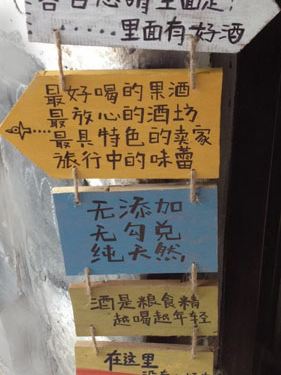 里面有好酒
最好喝的果酒
最放心的酒坊
最具特色的卖家
旅行中的味蕾
无添加
无勾兑
纯天然
酒是粮食精
越喝越年轻
在这里